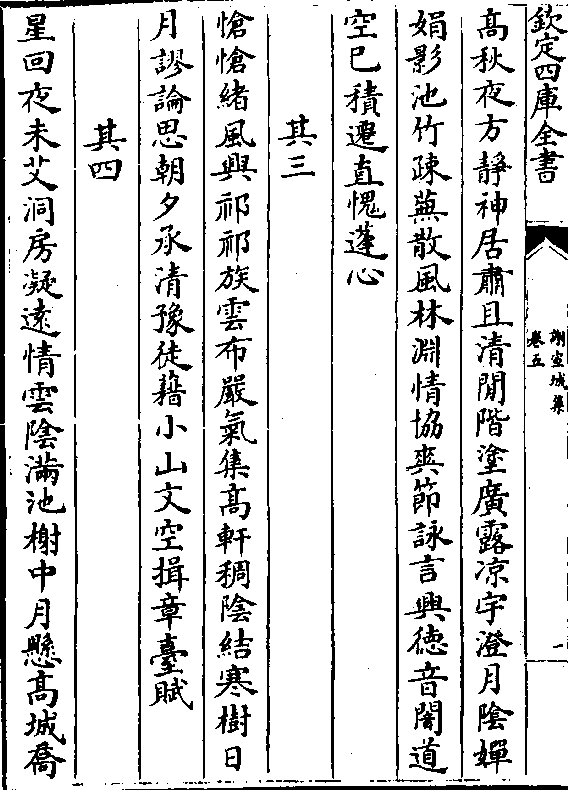 欽定四庫全書
謝宣城集
卷五
一
髙秋夜方靜神居肅且清閒階塗廣露凉宇澄月陰嬋
娟影池竹疎蕪散風林淵情協爽節詠言興徳音闇道
空已積遷直愧蓬心
其三
愴愴緒風興祁祁族雲布嚴氣集髙軒稠陰結寒樹日
月謬論思朝夕承清豫徒藉小山文空揖章臺賦
其四
星回夜未艾洞房凝遠情雲陰滿池榭中月懸髙城喬